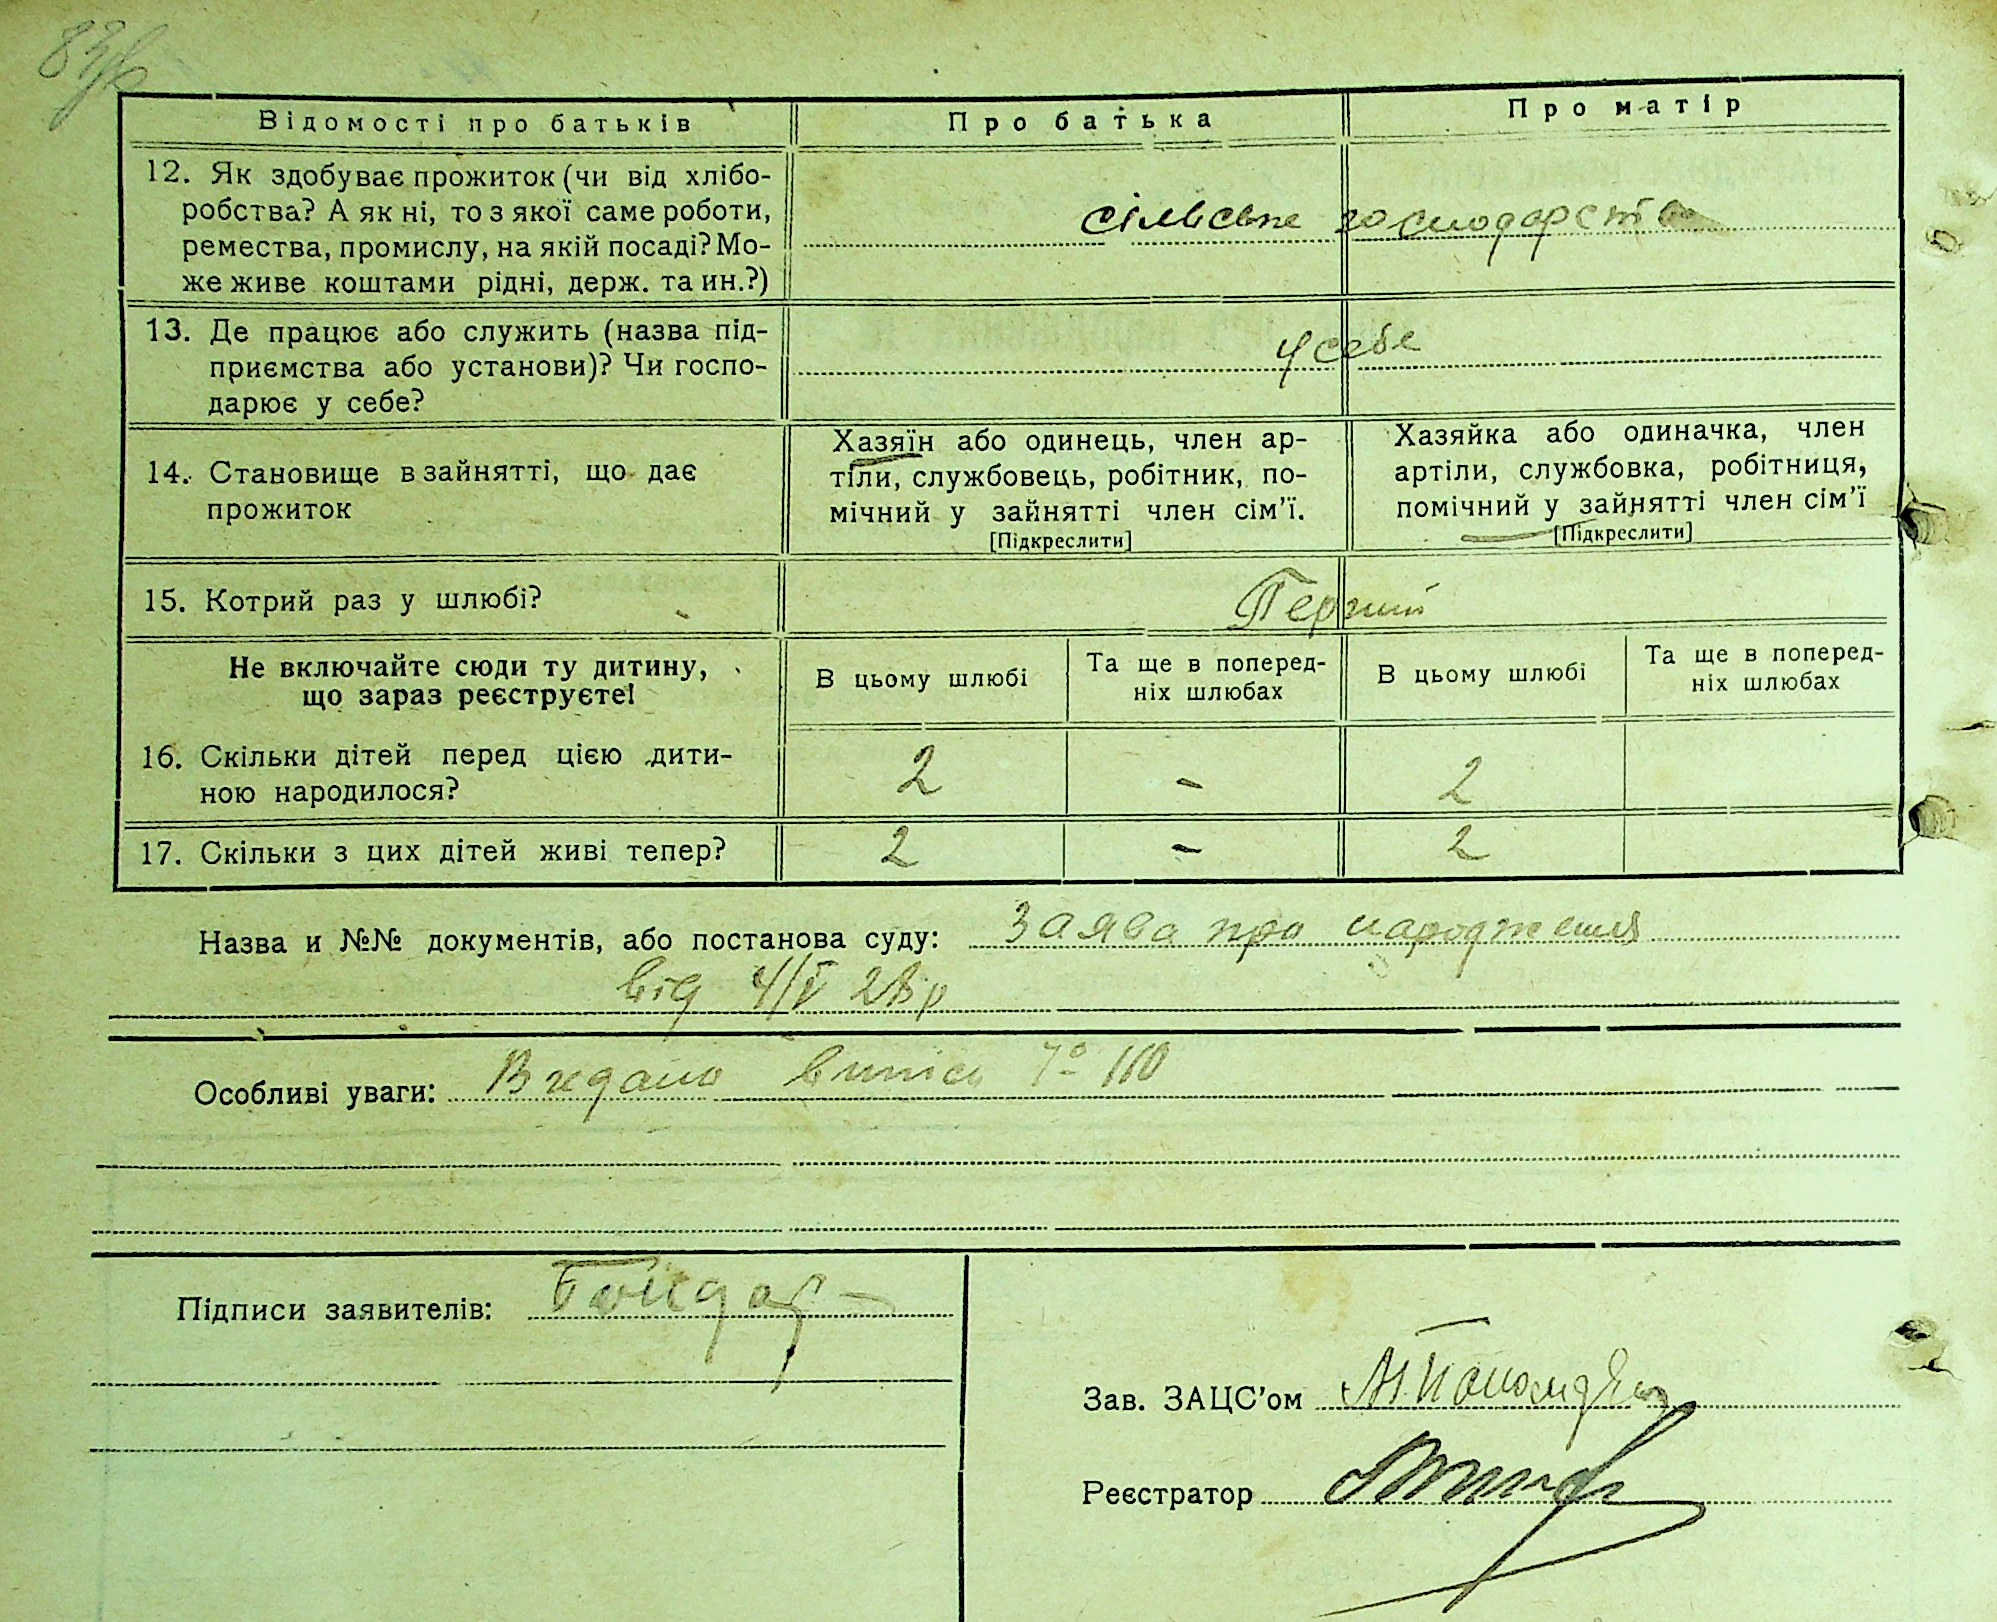 Відомості про батьків
Про батька
Про матір
12. Як здобуває прожиток (чи від хлібо-
робства? А як ні, то з якої саме роботи,
ремества, промислу, на якій посаді? Мо-
же живе коштами рідні, держ. та ин.?)
сільське господарство
13. Де працює або служить (назва під-
приємства або установи)? Чи госпо-
дарює у себе?
у себе
14. Становище в зайнятті, що дає
прожиток
Хазяїн або одинець, член ар-
тіли, службовець, робітник, по-
мічний у зайнятті член сім'ї.
[Підкреслити]
Хазяйка або одиначка, член
артіли, службовка, робітниця,
помічний у зайнятті член сім'ї
[Підкреслити]
15. Котрий раз у шлюбі?
Перший
Не включайте сюди ту дитину,
що зараз реєструєте!
В цьому шлюбі
Та ще в поперед-
ніх шлюбах
В цьому шлюбі
Та ще в поперед-
ніх шлюбах
16. Скільки дітей перед цією дити-
ною народилося?
2 - 2
17. Скільки з цих дітей живі тепер?
2 - 2
Назва и №№ документів, або постанова суду: Заява про народження
від 4/V 28 р
Особливі уваги: Видано випись № 110
Підписи заявителів:
Зав. ЗАЦС'ом
Реєстратор